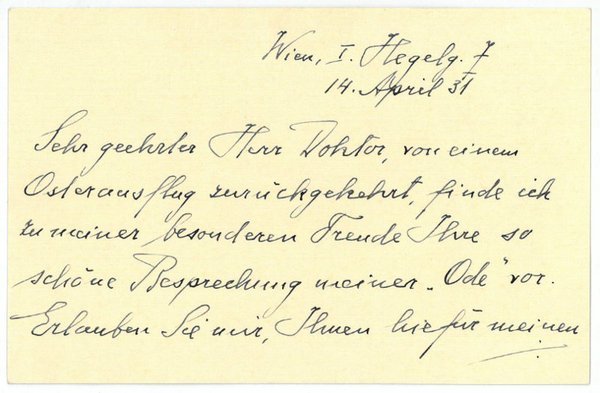 Wien, I. Hegelg. 7
14. April 31
Sehr geehrter Herr Doktor, von einem
Osterausflug zurückgekehrt, finde ich
zu meiner besonderen Freude Ihre so
schöne Besprechung meiner „Ode" vor.
Erlauben Sie mir, Ihnen hiefür meinen